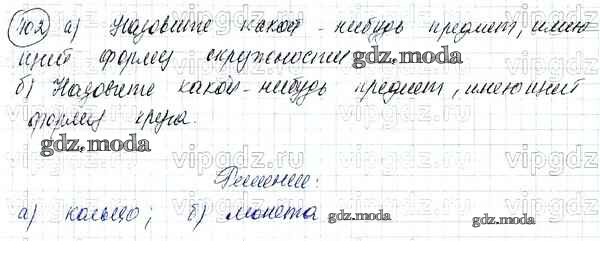 102 а) Назовите какой-нибудь предмет, имею
щий форму окружности gdz.moda
б) Назовите какой-нибудь предмет, имеющий
форму круга. vipgdz.ru
gdz.moda
vipgdz.ru vipgdz.ru
Решение:
а) кольцо; б) монета gdz.moda gdz.moda